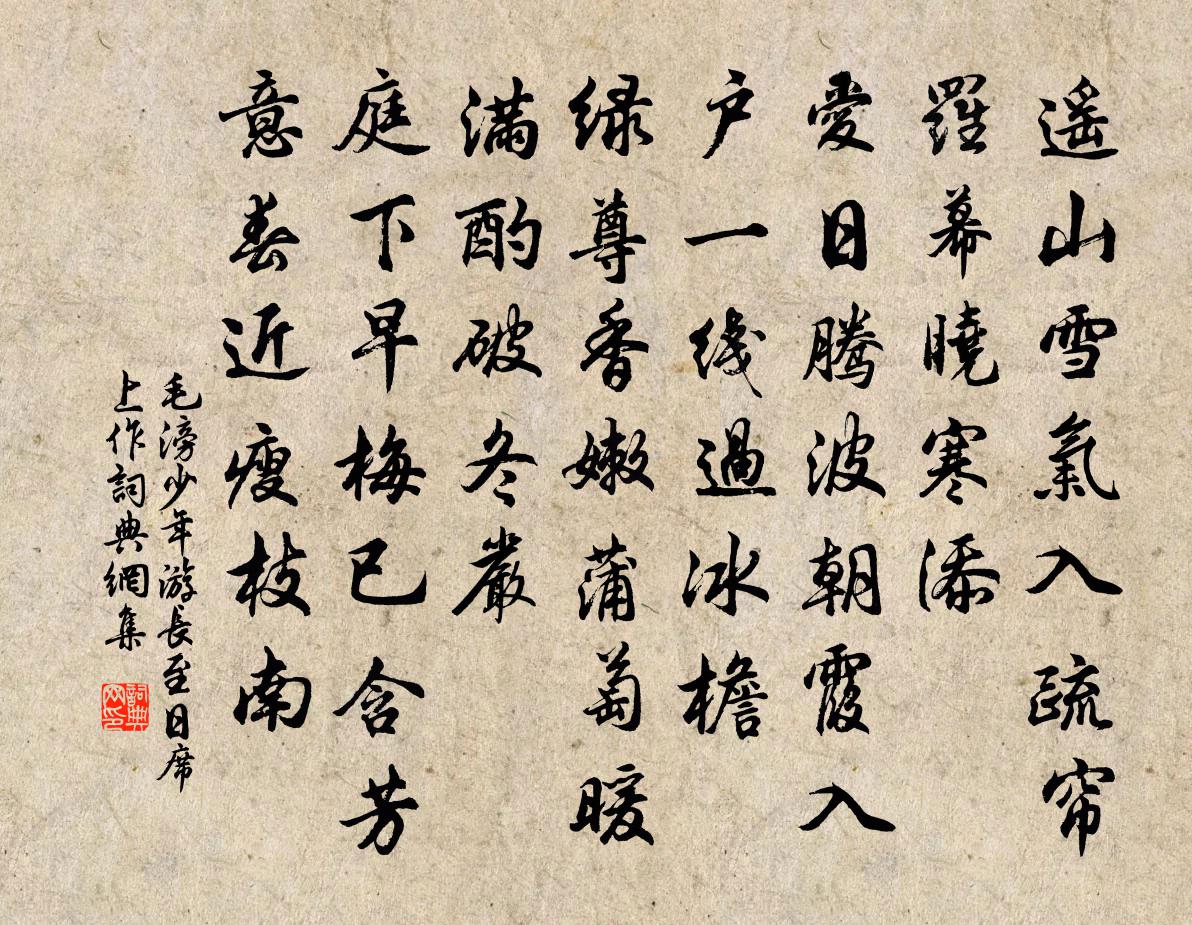 遥山雪氣入疏帘
羅幕曉寒添
愛日腾波朝霞入
户一线過冰檐
绿尊香嫩蒲萄暖
满酌破冬嚴
庭下早梅已含芳
意春近瘦枝南
毛滂少年游長至日席
上作詞典網集
詞典
网印